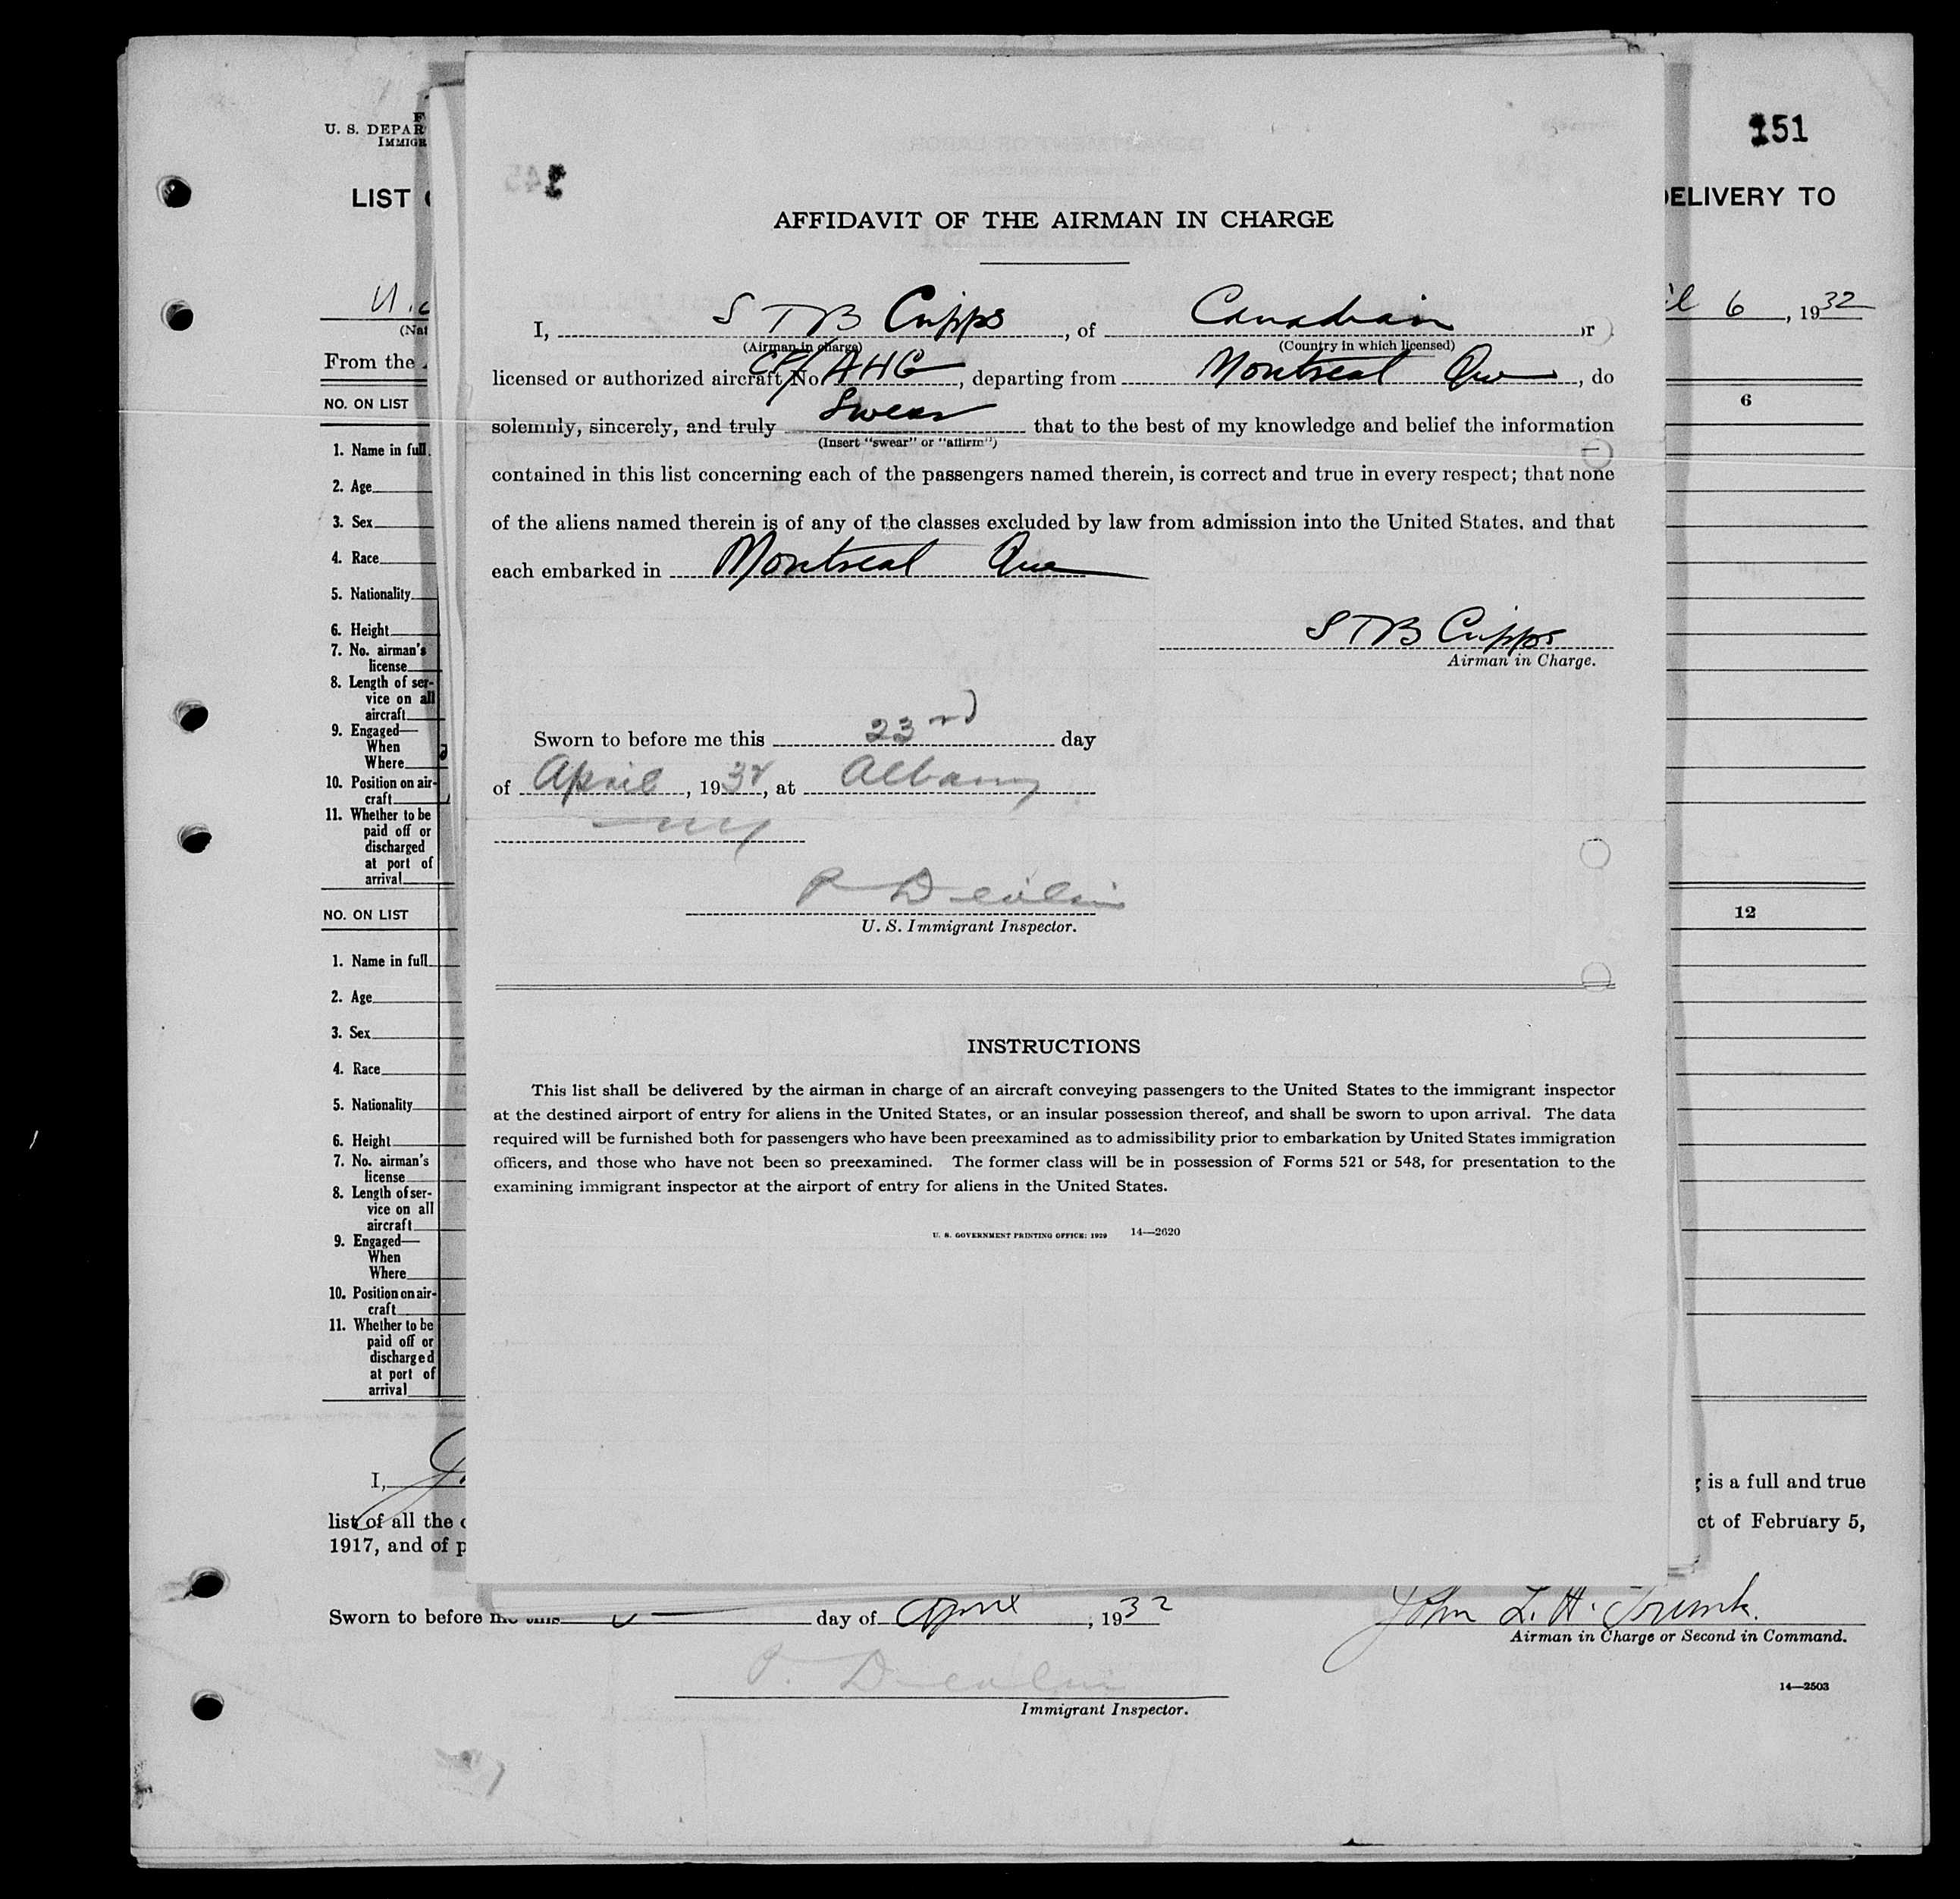 151
F
U. S. DEPAR
IMMIGR
LIST
DELIVERY TO
6, 1932
(Nat
From the
NO. ON LIST
6
1. Name in full
2. Age
3. Sex
4. Race
5. Nationality
6. Height
7. No. airman's
license
8. Length of ser-
vice on all
aircraft
9. Engaged—
When
Where
10. Position on air-
craft
11. Whether to be
paid off or
discharged
at port of
arrival
NO. ON LIST
12
1. Name in full
2. Age
3. Sex
4. Race
5. Nationality
6. Height
7. No. airman's
license
8. Length of ser-
vice on all
aircraft
9. Engaged—
When
Where
10. Position on air-
craft
11. Whether to be
paid off or
discharged
at port of
arrival
AFFIDAVIT OF THE AIRMAN IN CHARGE
I, S T B Cripps, of Canadian or
(Airman in charge) (Country in which licensed)
licensed or authorized aircraft No CF/AHG, departing from Montreal Que, do
solemnly, sincerely, and truly Swear that to the best of my knowledge and belief the information
(Insert "swear" or "affirm")
contained in this list concerning each of the passengers named therein, is correct and true in every respect; that none
of the aliens named therein is of any of the classes excluded by law from admission into the United States, and that
each embarked in Montreal Que
S T B Cripps
Airman in Charge.
Sworn to before me this 23rd day
of April, 1932, at Albany
NY
P Devlin
U. S. Immigrant Inspector.
INSTRUCTIONS
This list shall be delivered by the airman in charge of an aircraft conveying passengers to the United States to the immigrant inspector
at the destined airport of entry for aliens in the United States, or an insular possession thereof, and shall be sworn to upon arrival. The data
required will be furnished both for passengers who have been preexamined as to admissibility prior to embarkation by United States immigration
officers, and those who have not been so preexamined. The former class will be in possession of Forms 521 or 548, for presentation to the
examining immigrant inspector at the airport of entry for aliens in the United States.
U. S. GOVERNMENT PRINTING OFFICE: 1929 14—2620
I,
is a full and true
list of all the
ct of February 5,
1917, and of p
Sworn to before me this day of April, 1932
John L. H. Trunk.
Airman in Charge or Second in Command.
P. Devlin
Immigrant Inspector.
14—2503